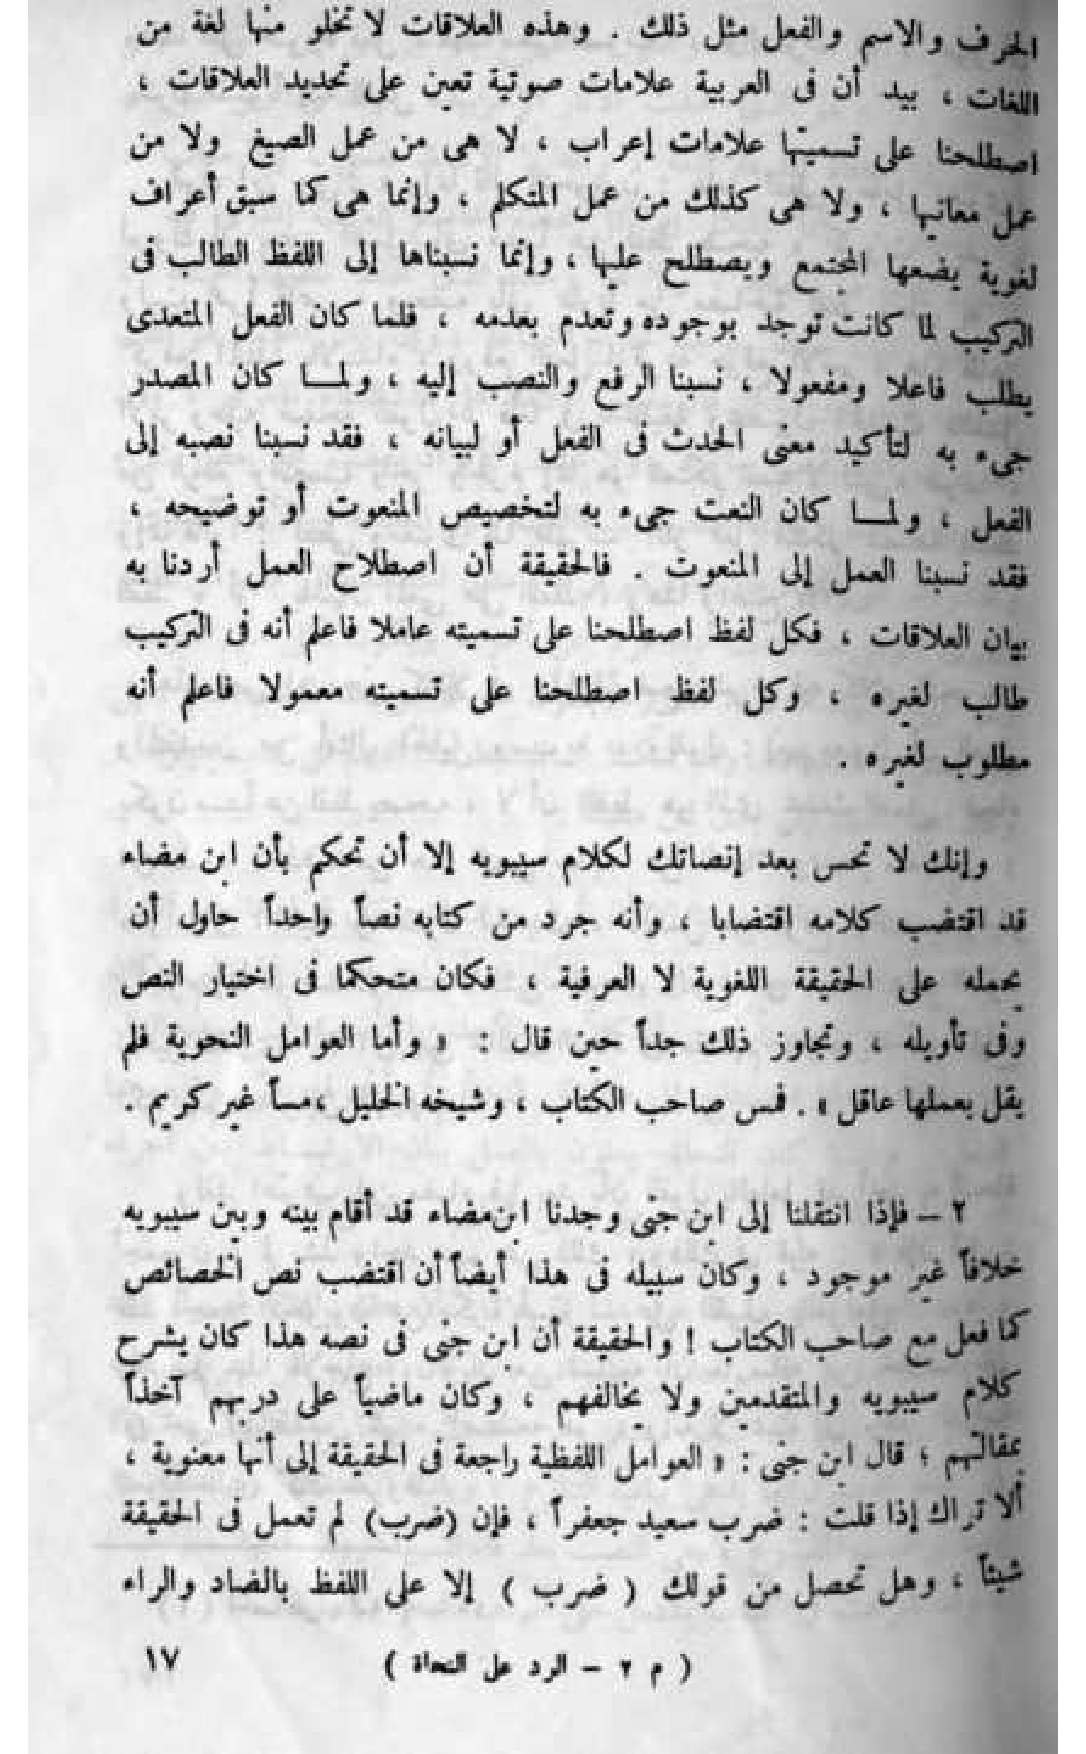 الحرف والاسم والفعل مثل ذلك . وهذه العلاقات لا تخلو منها لغة من
اللغات ، بيد أن فى العربية علامات صوتية تعين على تحديد العلاقات ،
اصطلحنا على تسميتها علامات إعراب ، لا هى من عمل الصيغ ولا من
عمل معانيها ، ولا هى كذلك من عمل المتكلم ، وإنما هى كما سبق أعراف
لغوية يضعها المجتمع ويصطلح عليها ، وإنما نسبناها إلى اللفظ الطالب فى
التركيب لما كانت توجد بوجوده وتعدم بعدمه ، فلما كان الفعل المتعدى
يطلب فاعلا ومفعولا ، نسبنا الرفع والنصب إليه ، ولمــا كان المصدر
جىء به لتأكيد معنى الحدث فى الفعل أو لبيانه ، فقد نسبنا نصبه إلى
الفعل ، ولمــا كان النعت جىء به لتخصيص المنعوت أو توضيحه ،
فقد نسبنا العمل إلى المنعوت . فالحقيقة أن اصطلاح العمل أردنا به
بيان العلاقات ، فكل لفظ اصطلحنا على تسميته عاملا فاعلم أنه فى التركيب
طالب لغيره ، وكل لفظ اصطلحنا على تسميته معمولا فاعلم أنه
مطلوب لغيره .
وإنك لا تحس بعد إنصاتك لكلام سيبويه إلا أن تحكم بأن ابن مضاء
قد اقتضب كلامه اقتضابا ، وأنه جرد من كتابه نصاً واحداً حاول أن
يحمله على الحقيقة اللغوية لا العرفية ، فكان متحكما فى اختيار النص
وفى تأويله ، وتجاوز ذلك جداً حين قال : « وأما العوامل النحوية فلم
يقل بعملها عاقل » . فمس صاحب الكتاب ، وشيخه الخليل ،مساً غير كريم .
٢ – فإذا انتقلنا إلى ابن جنى وجدنا ابن مضاء قد أقام بينه وبين سيبويه
خلافاً غير موجود ، وكان سبيله فى هذا أيضاً أن اقتضب نص الخصائص
كما فعل مع صاحب الكتاب ! والحقيقة أن ابن جنى فى نصه هذا كان يشرح
كلام سيبويه والمتقدمين ولا يخالفهم ، وكان ماضياً على دربهم آخذاً
بمقالتهم ؛ قال ابن جنى : « العوامل اللفظية راجعة فى الحقيقة إلى أنها معنوية ،
ألا تراك إذا قلت : ضرب سعيد جعفراً ، فإن (ضرب) لم تعمل فى الحقيقة
شيئاً ، وهل تحصل من قولك ( ضرب ) إلا على اللفظ بالضاد والراء
( م ٢ – الرد على النحاة )
١٧